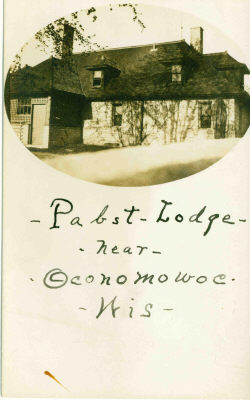 - Pabst - Lodge -
- near -
- Oconomowoc -
- Wis -